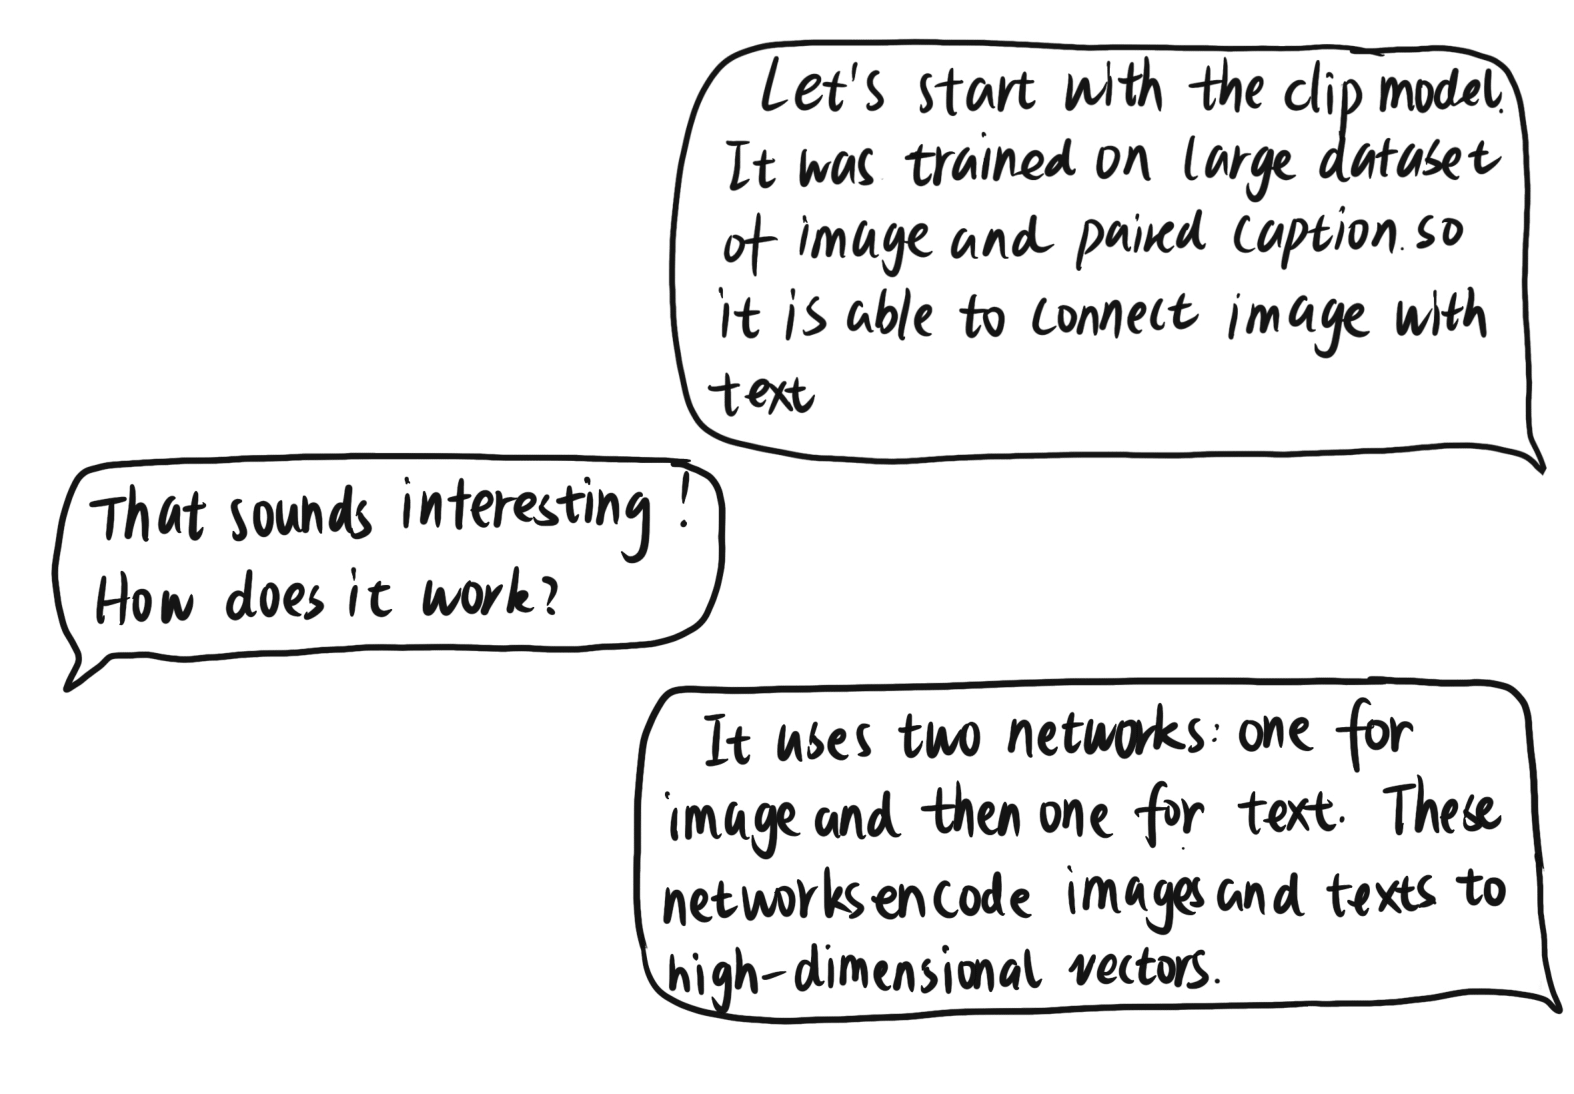 Let's start with the clip model.
It was trained on large dataset
of image and paired caption. so
it is able to connect image with
text
That sounds interesting!
How does it work?
It uses two networks: one for
image and then one for text. These
networks encode images and texts to
high-dimensional vectors.